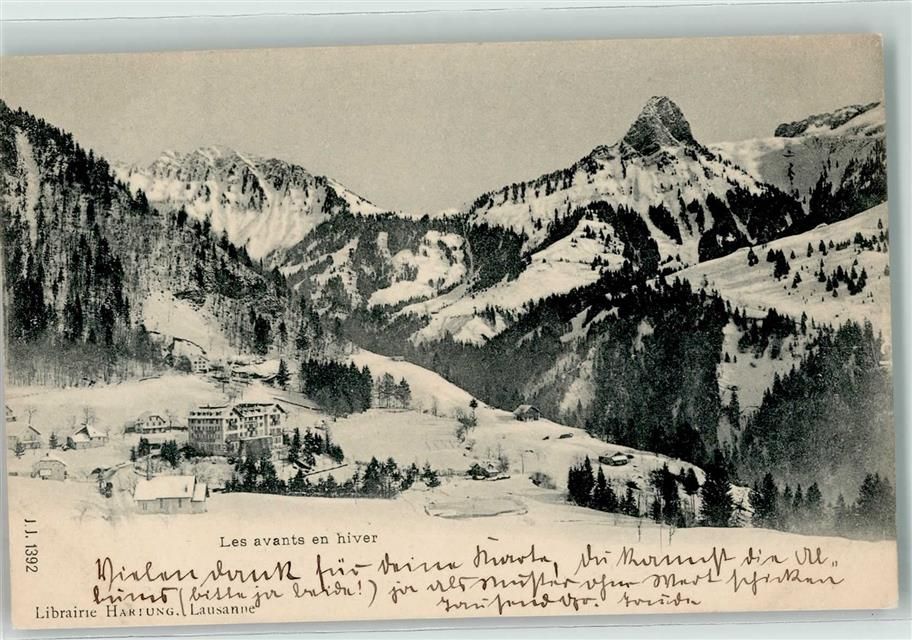 Les avants en hiver
J.J. 1392
Vielen dank für deine Karte, du kannst die Al„
bums (bitte ja beide!) ja als Muster ohne Wert schicken
Tausend
Librairie HARTUNG, Lausanne